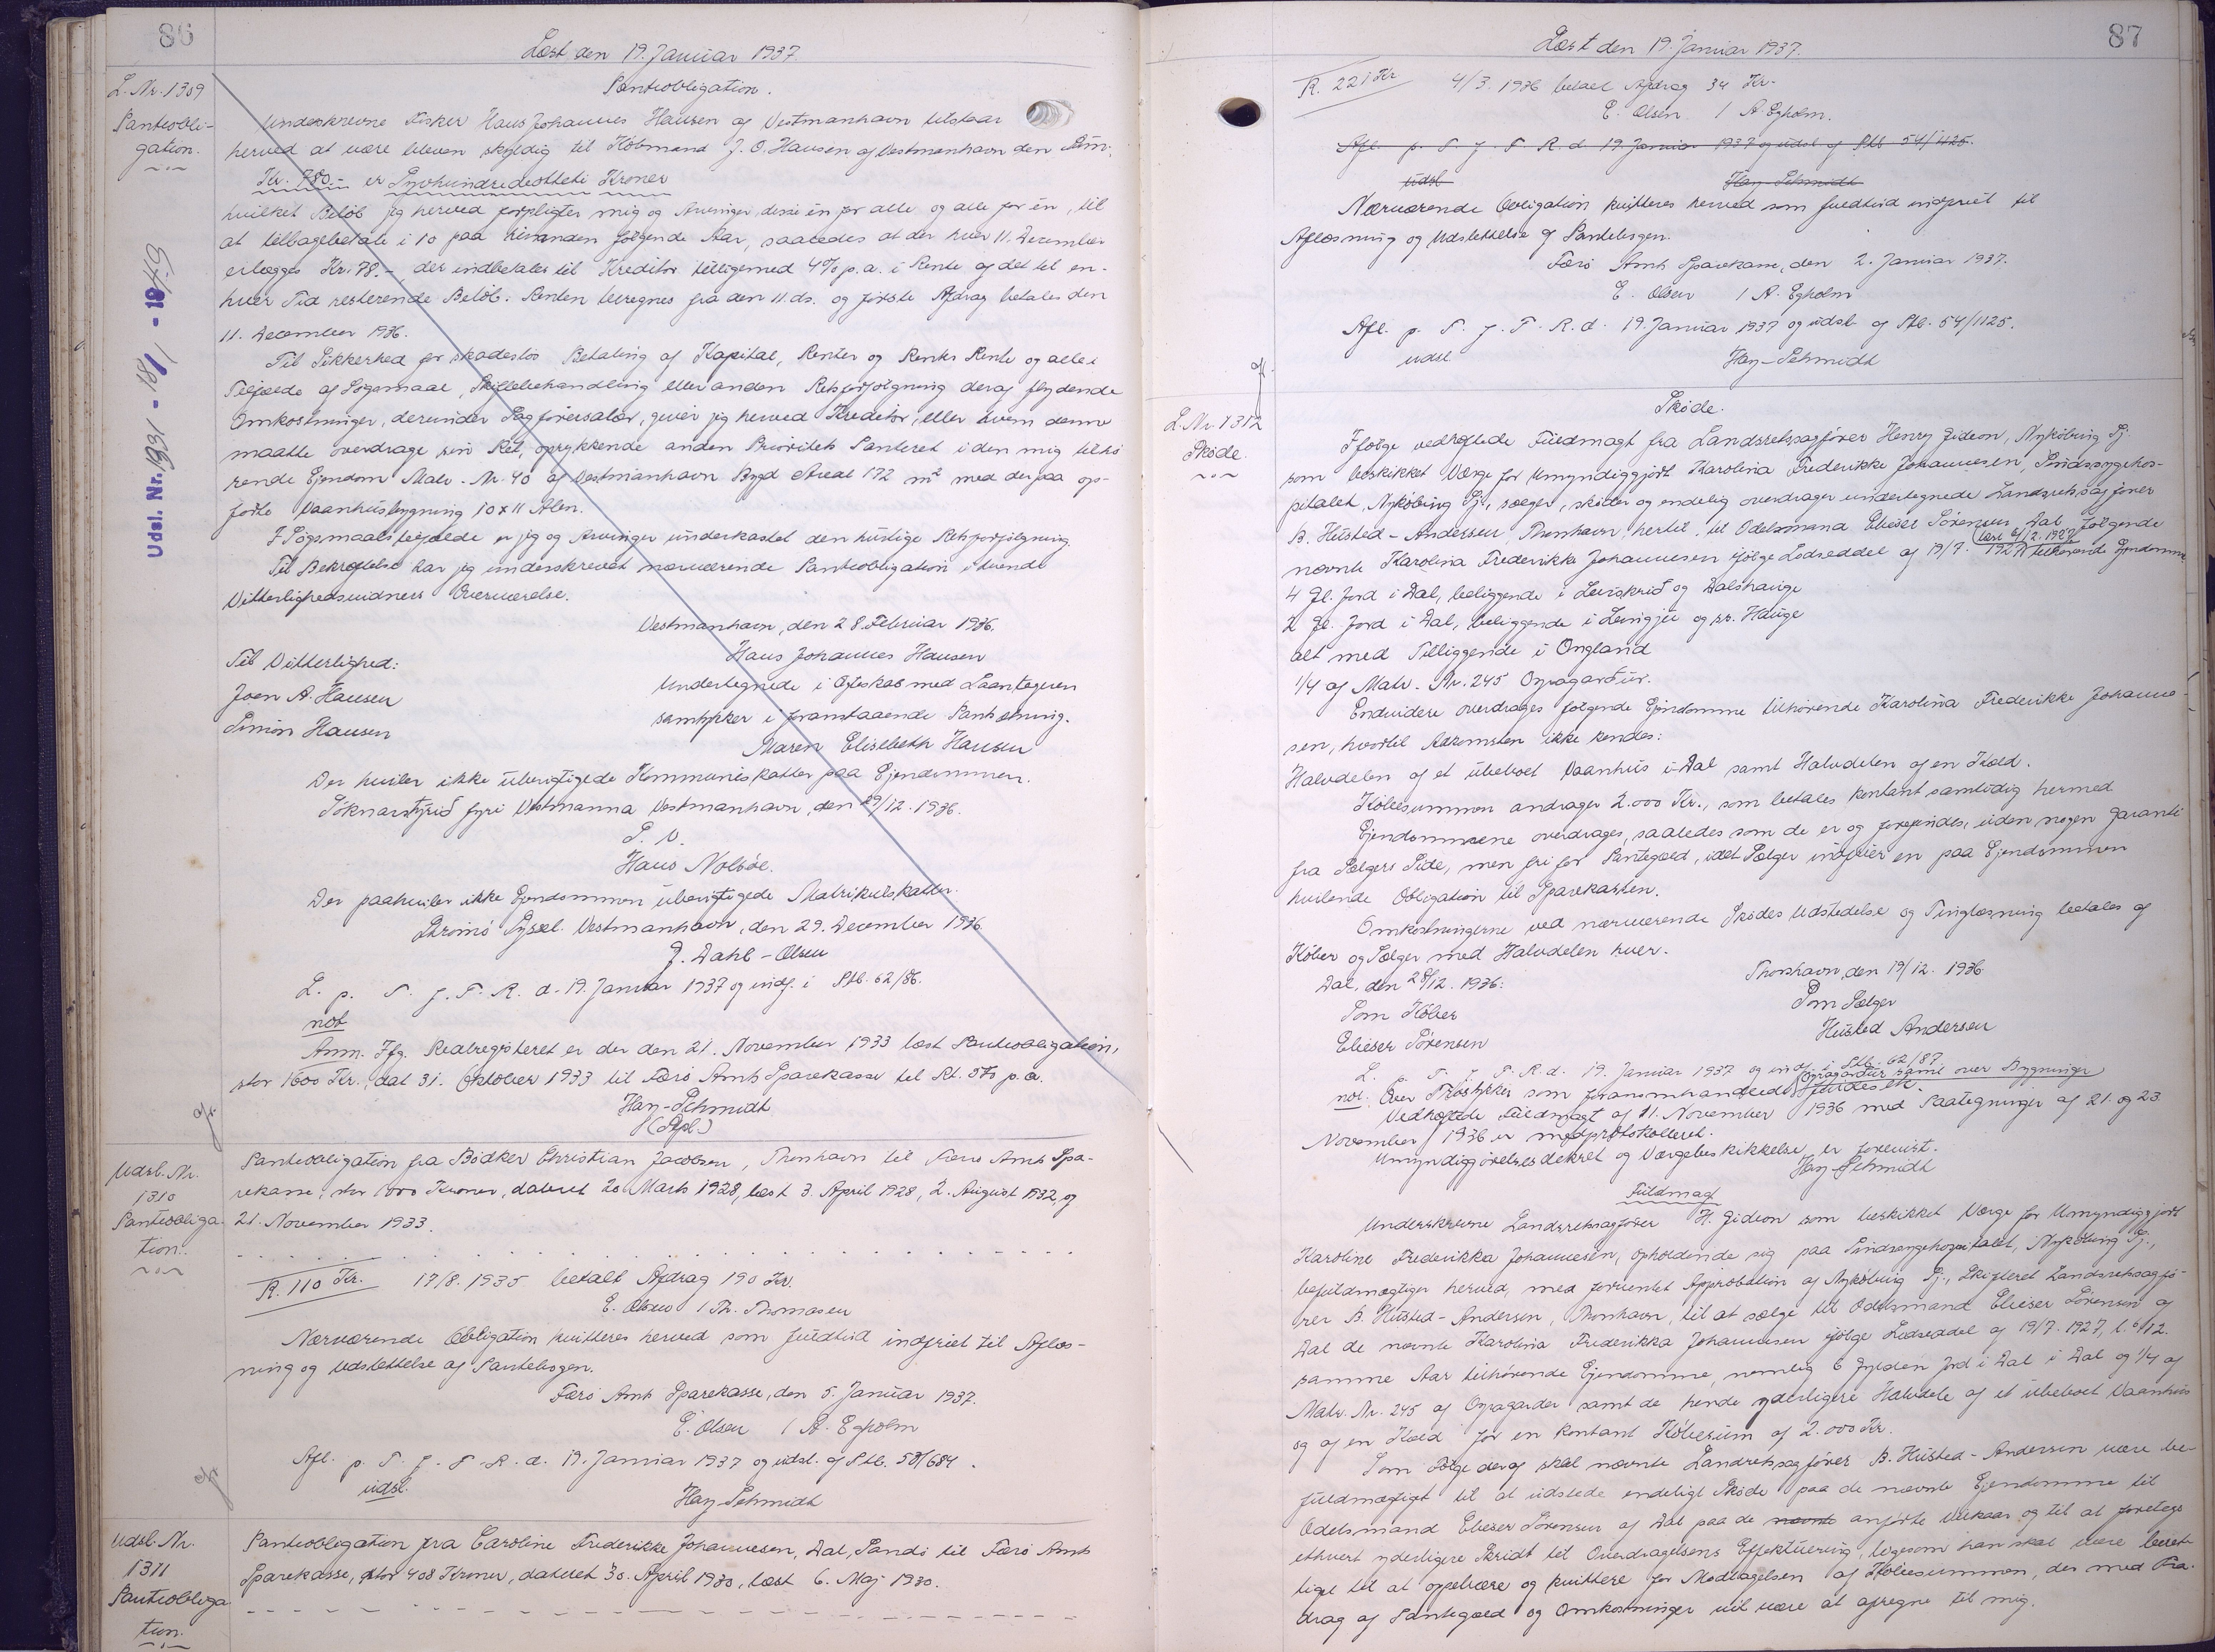 86
Læst den 19. Januar 1937.
L. Nr. 1309
Panteobli-
gation.
Udsl. Nr. 1931 - 18/1 - 1949
Panteobligation.
Underskrevne Fisker Hans Johannes Hansen af Vestmanhavn tilstaar
herved at være bleven skyldig til Købmand J. O. Hansen af Vestmanhavn den Sum,
Kr. 780.- er Syvhundredeotteti Kroner
hvilket Beløb jeg herved forpligter mig og Arvinger, disse én for alle og alle for én, til
at tilbagebetale i 10 paa hinanden følgende Aar, saaledes at der hver 11. December
erlægges Kr. 78.- der indbetales til Kreditor tilligemed 4% p.a. i Rente af det til en-
hver Tid resterende Beløb. Renten beregnes fra den 11. ds. og første Afdrag betales den
11. December 1936.
Til Sikkerhed for skadesløs Betaling af Kapital, Renter og Renters Rente og alle i
Tilfælde af Søgsmaal, Skiftebehandling eller anden Retsforfølgning deraf flydende
Omkostninger, derunder Sagførersalær, giver jeg herved Kreditor, eller hvem denne
maatte overdrage sin Ret, oprykkende anden Prioritets Panteret i den mig tilhø
rende Ejendom Matr. Nr. 40 af Vestmanhavn Bygd Areal 172 m² med derpaa op-
førte Vaanhusbygning 10 x 11 Alen.
I Søgsmaalstilfælde er jeg og Arvinger underkastet den hurtige Retsforfølgning.
Til Bekræftelse har jeg underskrevet nærværende Panteobligation i tvende
Vitterlighedsvidners Overværelse.
Vestmanhavn, den 28. Februar 1936.
Til Vitterlighed:
Hans Johannes Hansen
Joen A. Hansen
Undertegnede i Ægteskab med Laantageren
Simon Hansen
samtykker i foranstaaende Pantsætning.
Maren Elisebeth Hansen
Der hviler ikke uberigtigede Kommuneskatter paa Ejendommen.
Sóknarstýrið fyri Vestmanna Vestmanhavn, den 29/12. 1936.
P. V.
Hans Nolsøe.
Der paahviler ikke Ejendommen uberigtigede Matrikulskatter.
Strømø Syssel. Vestmanhavn, den 29. December 1936.
J. Dahl-Olsen
L. p. T. f. F. R. d. 19. Januar 1937 og indf. i Ptb. 62/86.
not
Anm. Ifg. Realregisteret er der den 21. November 1933 læst Panteobligation,
stor 1600 Kr., dat 31. Oktober 1933 til Færø Amts Sparekasse til Rt. 5% p.a.
Hay-Schmidt
Udsl. Nr.
1310
Panteobliga-
tion.
Panteobligation fra Bødker Christian Jacobsen, Thorshavn til Færø Amts Spa-
rekasse, stor 1000 Kroner, dateret 20. Marts 1928, læst 3. April 1928, 2. August 1932, og
21. November 1933.
R. 110 Kr. 17/8. 1935 betalt Afdrag 190 Kr.
E. Olsen / Th. Thomasen
Nærværende Obligation kvitteres herved som fuldtud indfriet til Aflæs-
ning og Udslettelse af Pantebogen.
Færø Amts Sparekasse, den 5. Januar 1937.
E. Olsen / A. Egholm
Afl. p. T. f. F. R. d. 19. Januar 1937 og udsl. af Ptb. 53/684.
udsl.
Hay-Schmidt
Udsl. Nr.
1311
Panteobliga
tion.
Panteobligation fra Caroline Frederikke Johannesen, Dal, Sandø til Færø Amts
Sparekasse, stor 408 Kroner, dateret 30. April 1930, læst 6. Maj 1930.
87
Læst den 19. Januar 1937.
R. 221 Kr 4/3. 1936 betalt Afdrag 34 Kr.
E. Olsen / A. Egholm.
Afl. p. T. f. F. R. d. 19. Januar 1937 og udsl. af Ptb 54/1125.
udsl Hay-Schmidt
Nærværende Obligation kvitteres herved som fuldtud indfriet til
Aflæsning og Udslettelse af Pantebogen.
Færø Amts Sparekasse, den 2. Januar 1937.
E. Olsen / A. Egholm
Afl. p. T. f. F. R. d. 19. Januar 1937 og udsl. af Ptb. 54/1125.
udsl
Hay-Schmidt
L. Nr. 1312
Skøde.
Skøde.
Ifølge vedhæftede Fuldmagt fra Landsretssagfører Henry Gideon, Nykøbing Sj.
som beskikket Værge for Umyndiggjort Karolina Frederikke Johannesen, Sindssygehos-
pitalet, Nykøbing Sj., sælger, skøder og endelig overdrager undertegnede Landsretssagfører
B. Husted-Andersen, Thorshavn, hertil, til Odelsmand Elieser Sørensen, Dal følgende
nævnte Karolina Frederikke Johannesen ifølge Lodseddel af 19/7. 1927 (læst 6/12. 1927) tilhørende Ejendomme
4 Gl. Jord i Dal, beliggende i Leirskrið og Dalshauge
2 Gl. Jord i Dal, beliggende i Leingju og sr. Hauge
alt med Tilliggende i Ongland
1/4 af Matr. Nr. 245 Oyragarður.
Endvidere overdrages følgende Ejendomme tilhørende Karolina Frederikke Johanne-
sen, hvortil Adkomsten ikke kendes:
Halvdelen af et ubeboet Vaanhus i Dal samt Halvdelen af en Kæld.
Købesummen andrager 2.000 Kr., som betales kontant samtidig hermed
Ejendommene overdrages, saaledes som de er og forefindes, uden nogen Garanti
fra Sælgers Side, men fri for Pantegæld, idet Sælger indfrier en paa Ejendommen
hvilende Obligation til Sparekassen.
Omkostningerne ved nærværende Skødes Udstedelse og Tinglæsning betales af
Køber og Sælger med Halvdelen hver.
Dal, den 28/12. 1936.
Thorshavn, den 19/12. 1936
Som Køber
Som Sælger
Elieser Sørensen
Husted Andersen
L. p. T. f. F. R. d. 19. Januar 1937 og indf. i Ptb. 62/87
not: Over Træstykker som foranmhandlede Oyragarður samt over Bygninger findes ek.
Vedhæftede Fuldmagt af 11. November 1936 med Paategninger af 21. og 23.
November 1936 er medprotokolleret.
Umyndiggørelsesdekret og Værgebeskikkelse er forevist.
Hay-Schmidt
Fuldmagt
Underskrevne Landsretssagfører H. Gideon som beskikket Værge for Umyndiggjort
Karoline Frederikka Johannesen, opholdende sig paa Sindssygehospitalet, Nykøbing Sj.,
befuldmægtiger herved, med forventet Approbation af Nykøbing Sj., Skifteret Landsretssagfø-
rer B. Husted-Andersen, Thorshavn, til at sælge til Odelsmand Elieser Sørensen af
Dal de nævnte Karolina Frederikka Johannesen ifølge Lodseddel af 19/7. 1927, l. 6/12.
samme Aar tilhørende Ejendomme, nemlig 6 Gylden Jord i Dal i Dal og 1/4 af
Matr. Nr. 245 af Oyragarder samt de hende yderligere Halvdele af et ubeboet Vaanhus
og af en Kæld for en kontant Købesum af 2.000 Kr.
Som Følge deraf skal nævnte Landsretssagfører B. Husted-Andersen være be-
fuldmægtiget til at udstede endeligt Skøde paa de nævnte Ejendomme til
Odelsmand Elieser Sørensen af Dal paa de nævnte anførte Vilkaar og til at foretage
ethvert yderligere Skridt til Overdragelsens Effektuering, ligesom han skal være beret-
tiget til at oppebære og kvittere for Modtagelsen af Købesummen, der med Fra-
drag af Pantegæld og Omkostninger vil være at afregne til mig.